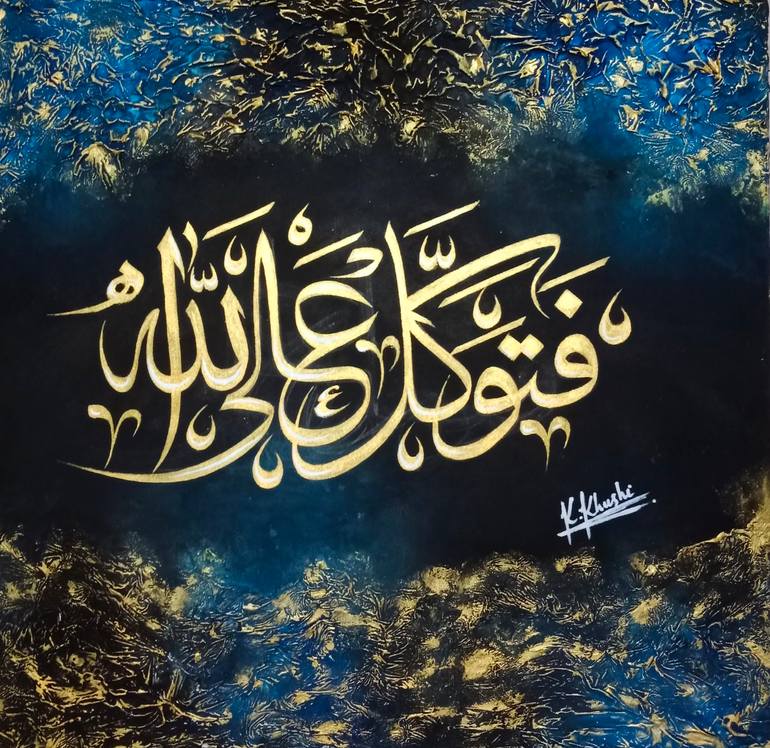 فتوكل على الله
K.Khushi